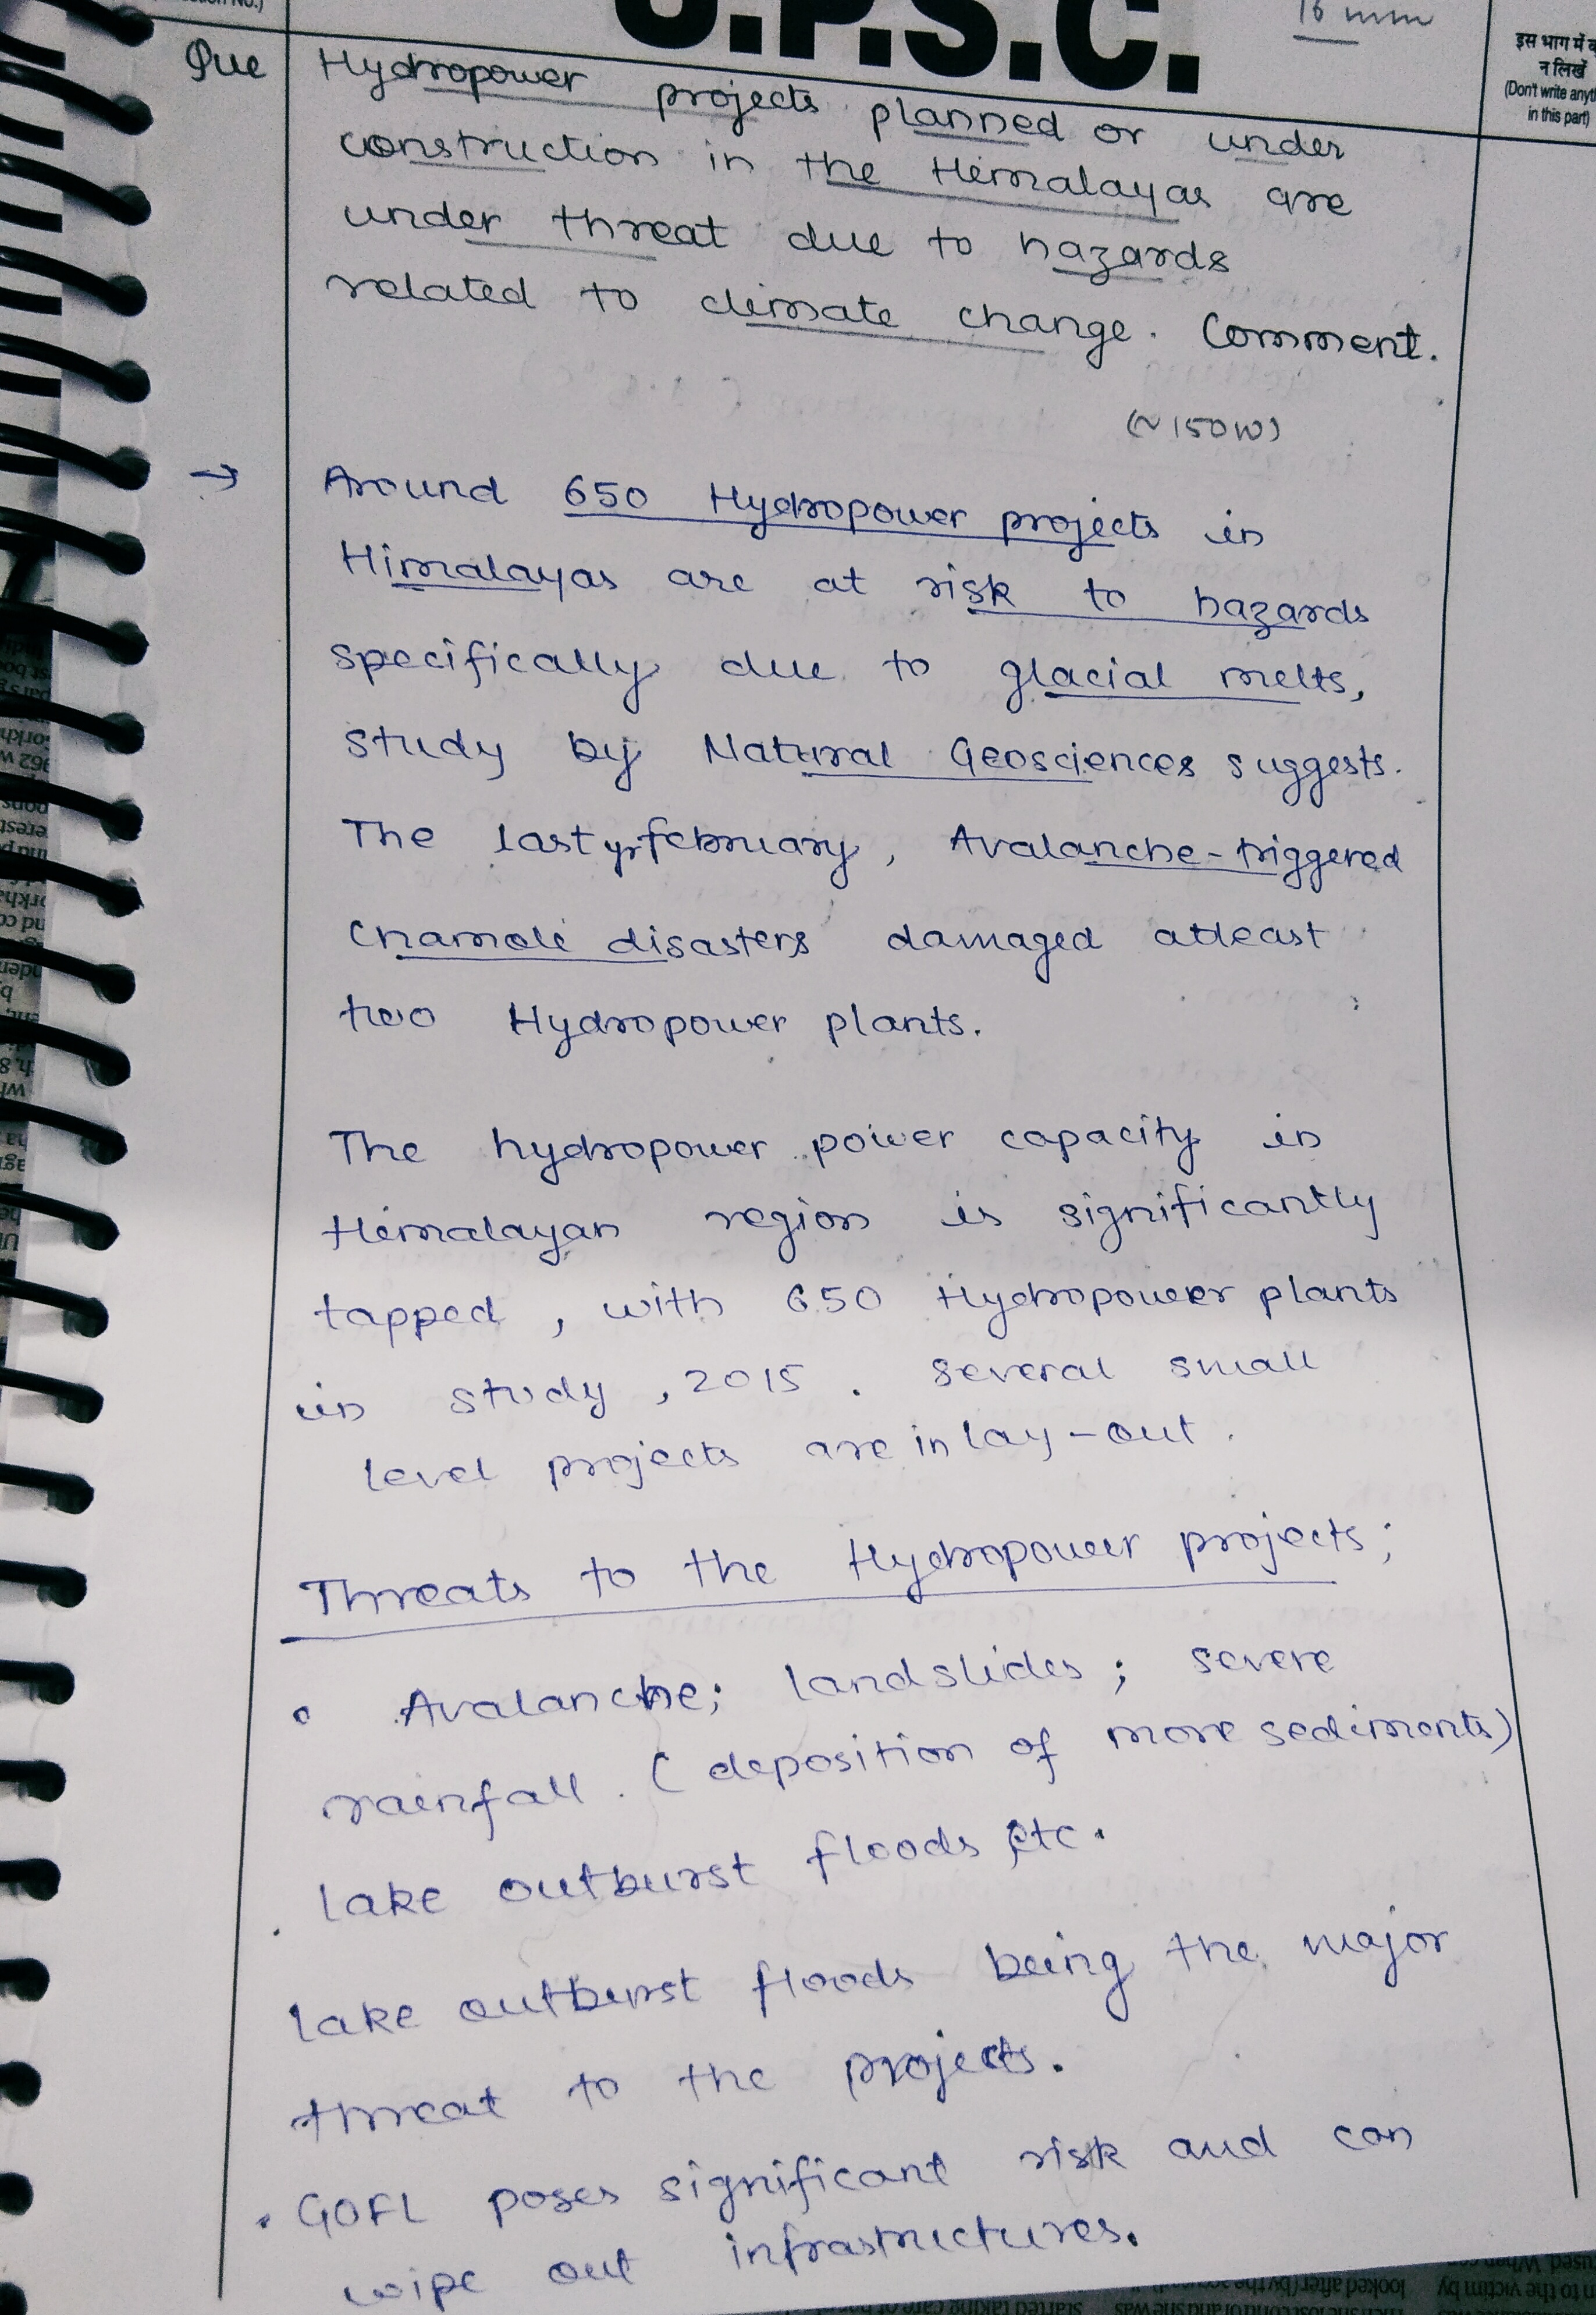 U.P.S.C.
16 mm
इस भाग में
न लिखें
(Don't write
in this part)
Que Hydropower projects planned or under
construction in the Himalayas are
under threat due to hazards
related to climate change. Comment.
(~150W)
→ Around 650 Hydropower projects in
Himalayas are at risk to hazards
specifically due to glacial melts,
study by Natural Geosciences suggests.
The last yr february, Avalanche-triggered
Chamoli disasters damaged atleast
two Hydropower plants.
The hydropower power capacity in
Himalayan region is significantly
tapped, with 650 Hydropower plants
in study, 2015. several small
level projects are in lay-out.
Threats to the Hydropower projects;
• Avalanche; landslides; severe
rainfall. (deposition of more sediments)
lake outburst floods, etc.
• lake outburst floods being the major
threat to the projects.
• GOFL poses significant risk and can
wipe out infrastructures.